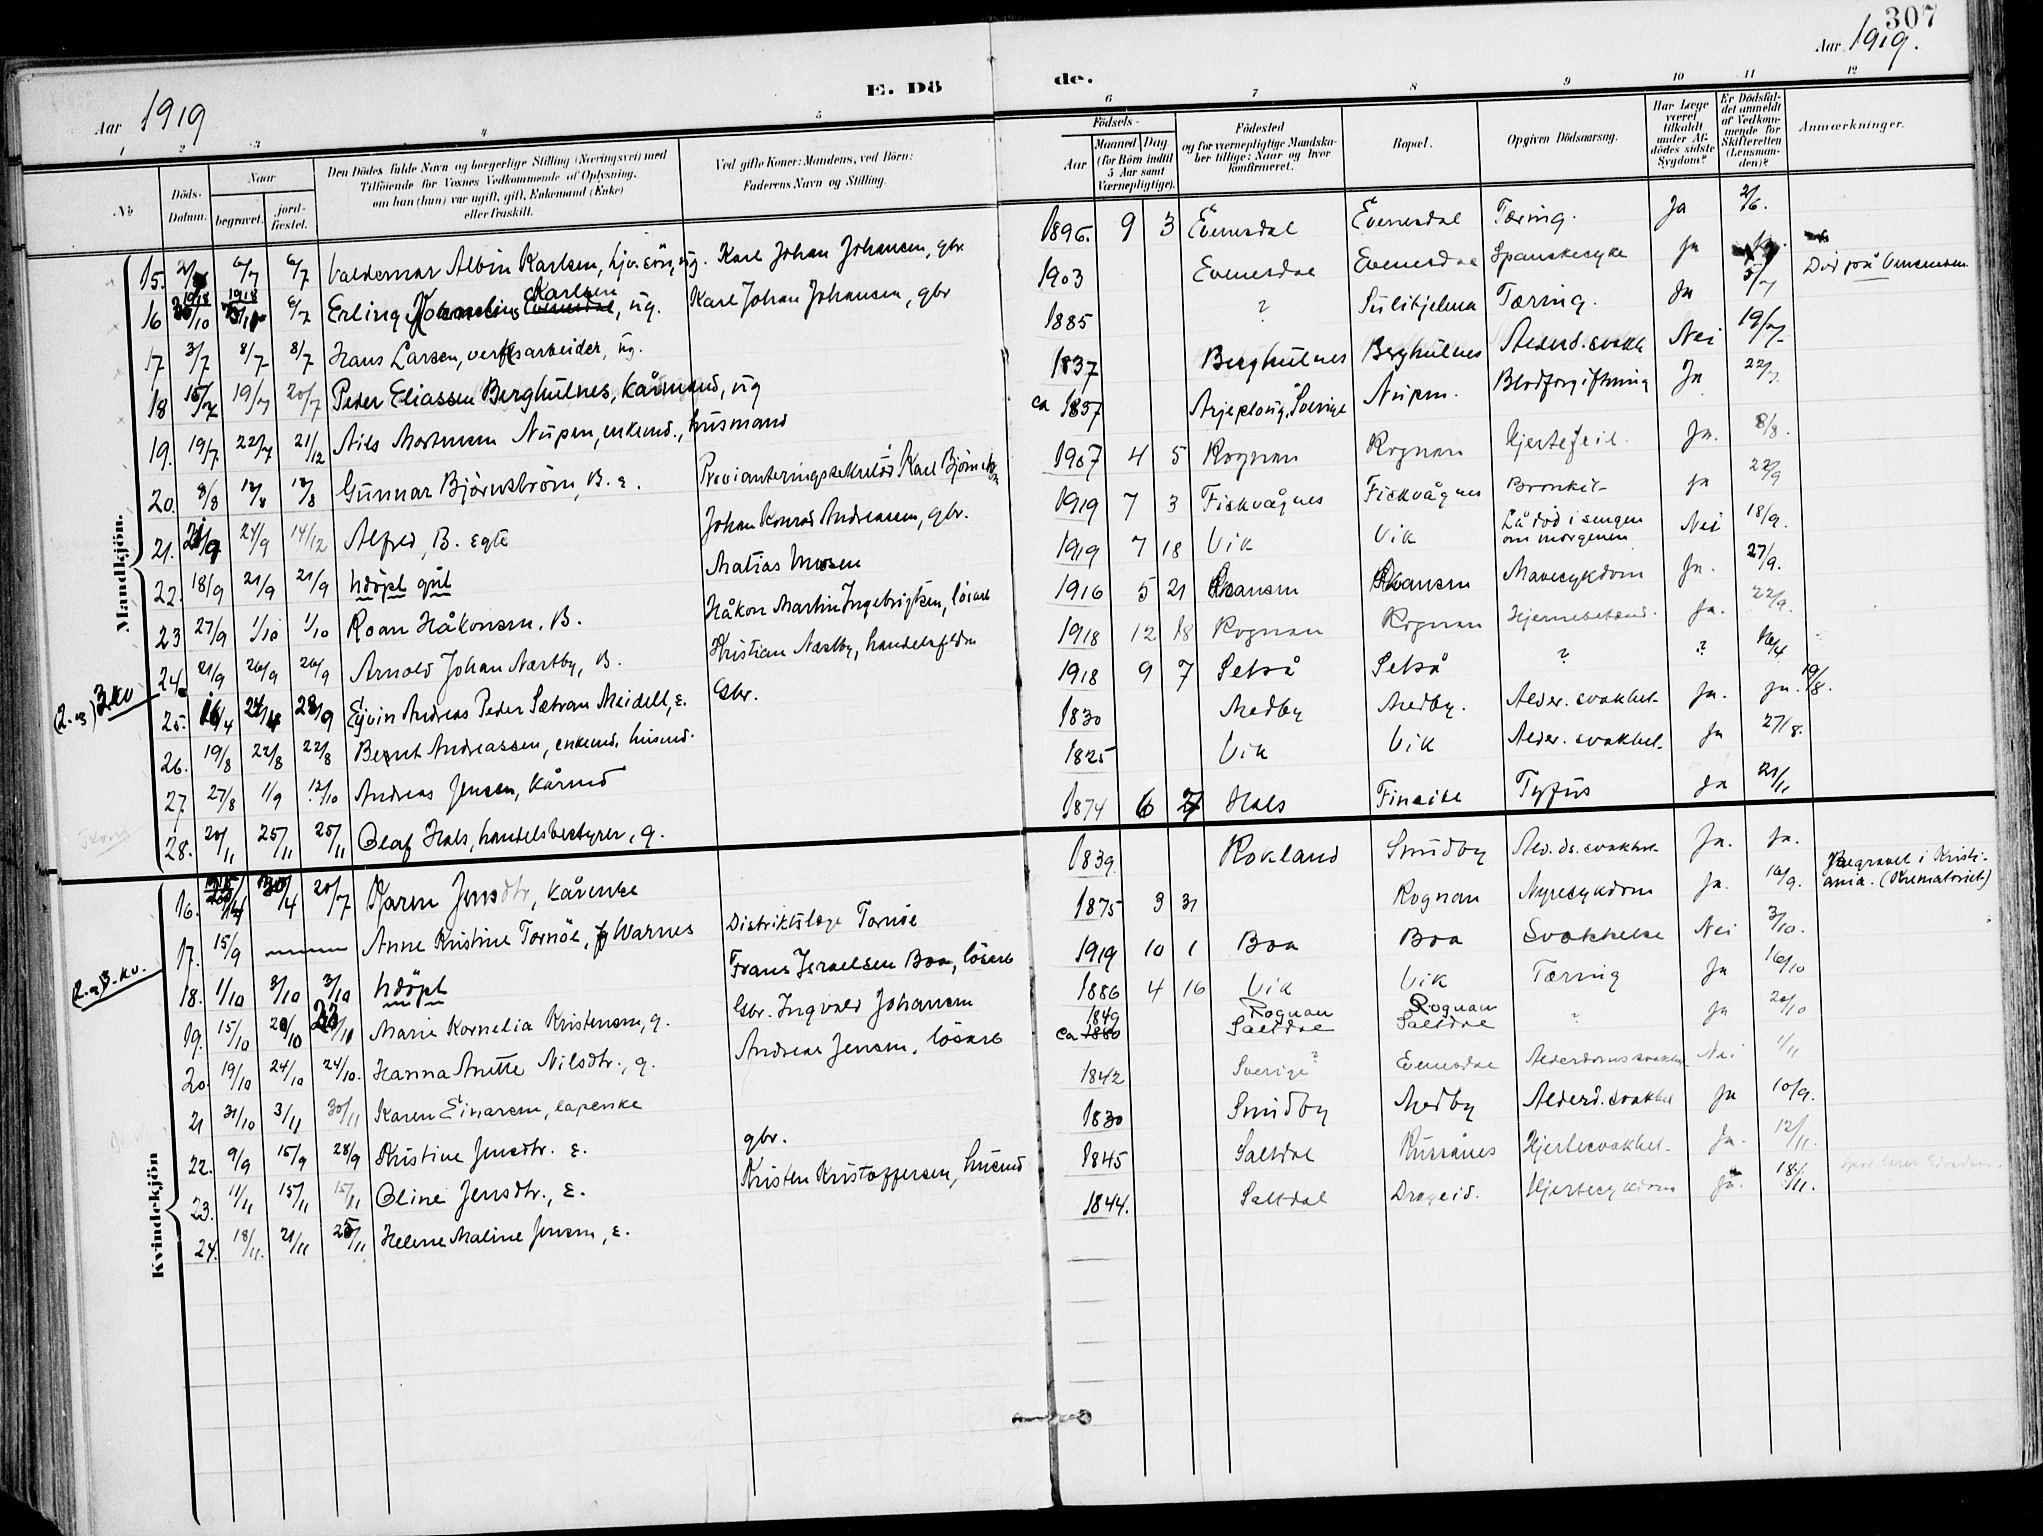 307
Aar 1919.
Aar 1919
E. Dö de.
1 2 3 4 5 6 7 8 9 10 11 12
No
Döds-Datum.
Naar
begravet.
jord-fæstet.
Den Dödes fulde Navn og borgerlige Stilling (Næringsvei) med
Tilföiende for Voxnes Vedkommende af Oplysning,
om han (hun) var ugift, gift, Enkemand (Enke)
eller fraskilt.
Ved gifte Koner: Mandens, ved Börn:
Faderens Navn og Stilling.
Födsels-
Aar
Maaned Dag
(for Börn indtil
5 Aar samt
Værnepligtige).
Födested
og for værnepligtige Mandska-
ber tillige: Naar og hvor
konfirmeret.
Bopæl.
Opgiven Dödsaarsag.
Har Læge
været
tilkaldt
under Af-
dödes sidste
Sygdom?
Er Dödsfal-
det anmeldt
af Vedkom-
mende for
Skifteretten
(Lensman-
den)?
Anmærkninger.
Mandkjön.
15. 6/7 6/7 Valdemar Albin Karlsen, hjv. sön, ug. Karl Johan Johansen, gbr. 1896. 9 3 Evenesdal Evenesdal Tæring. Ja 2/6.
16 1918 1918 6/7 Erling Karlsen, ug. Karl Johan Johansen, gbr 1903 Evenesdal Evenesdal Spanskesyke Ja Död på
17 3/7 8/7 8/7 Hans Larsen, verksarbeider, ug. 1885 ? Sulitjelma Tæring. Ja 5/7
18 15/7 19/7 20/7 Peder Eliassen Berghulnes, kårmand, ug 1837 Berghulnes Berghulnes Alderd. svakh. Nei 19/7
19. 19/7 22/7 21/12 Nils Mortensen Nupen, enkemd., husmand ca 1857 Arjeploug, Sverige Nupen. Blodforgiftning Ja 22/7
20. 8/8 12/8 12/8 Gunnar Björnström, B. e. Provianteringssekretær Karl Björnström 1907 4 5 Rognan Rognan Hjertefeil. Ja. 8/8.
21. 21/9 24/9 14/12 Alfred, B. egte Johan Konrad Andreassen, gbr. 1919 7 3 Fiskvågnes Fiskvågnes Bronkit- Ja 22/9
22. 18/9 21/9 21/9 hdöpt gut Matias Monsen 1919 7 18 Vik Vik Lå död i sengen om morgenen Nei 18/9.
23 27/9 1/10 1/10 Roan Håkonsen. B. Håkon Martin Ingebrigtsen, lösarb 1916 5 21 Skansen Skansen Mavesykdom Ja. 27/9.
24. 21/9 26/9 26/9 Arnold Johan Næstby, B. Kristian Næstby, handelsfldm 1918 12 18 Rognan Rognan Hjernebetænd. Ja. 22/9.
(2. og) 3 kv
25. 16/4 24/4 28/9 Eyvin Andreas Peder Sætran Meidell, e. Gbr. 1918 9 7 Setså Setså ? ? 16/4
26. 19/8 22/8 22/8 Bernt Andreassen, enkemd. husmd. 1830 Medby Medby. Alder. svakhet- Ja. Ja. 19/8.
27. 27/8 1/9 12/10 Andreas Jensen, kårmd 1825 Vik Vik Alder. svakhet- Ja 27/8.
28. 20/11 25/11 25/11 Olaf Hals, handelsbestyrer, g. 1874 6 27 Hals Fineide Tyfus Ja 21/11
Kvindekjön
16. 30/4 20/7 Karen Jensdtr, kårenke 1839. Rokland Smidby Ald.ds. svakhet- Ja. Ja.
17. 15/9 Anne Kristine Tornöe, f. Warnes Distriktslæge Tornöe 1875 3 31 Rognan Nyresykdom Ja. 16/9. Begravet i Kristi-ania. (Krematoriet)
(2. og) 3. kv.
18. 1/10 3/10 3/10 hdöpt Frans Israelsen Boa, lösarb 1919 10 1 Boa Boa Svakhelse Nei 3/10.
19. 15/10 20/10 Marie Kornelia Kristensen, g. Gbr. Ingvald Johansen 1886 4 16 Vik Vik Tæring Ja 16/10
20. 19/10 24/10 24/10. Hanna Anette Nilsdtr., g. Andreas Jensen, lösarb 1849 ca 1860 Rognan Saltdal Rognan Saltdal ? Ja 20/10
21 31/10 3/11 30/11 Karen Einarsen, lapenke 1842 Sverige? Evenesdal Alderdomssvakhet Nei 1/11
22. 9/9 15/9 28/9 Kristine Jensdtr. e. gbr. 1830 Smidby Medby Alderd. svakhet Ja 10/9.
23. 11/11 15/11 15/11 Oline Jensdtr., e. Kristen Kristoffersen, husmd 1845 Saltdal Russånes Hjertesvakhet- Ja. 12/11.
24. 18/11. 21/11 25/11 Helene Maline Jensen, e. 1844. Saltdal Drageid. Hjertesykdom Ja. 18/11.